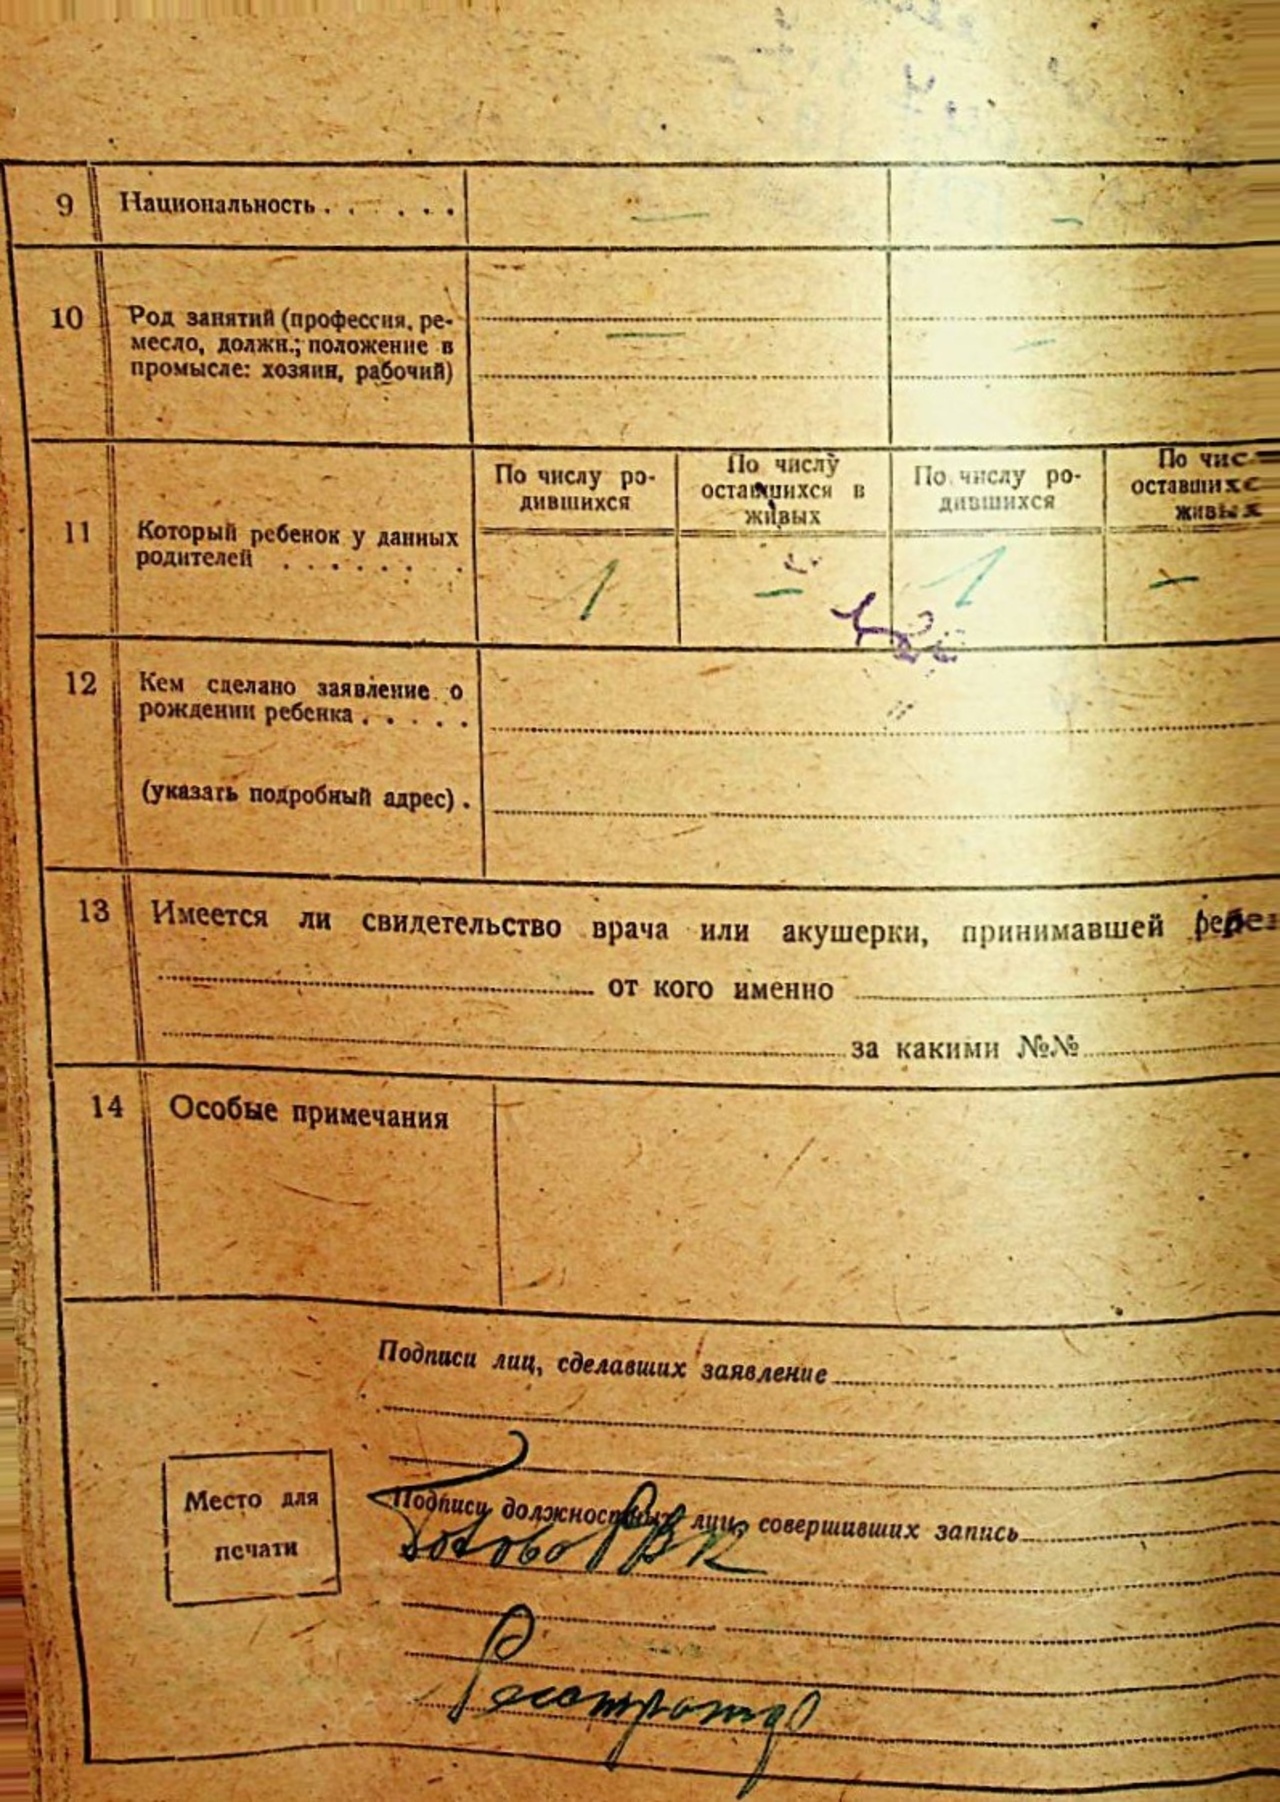 9 Национальность . . . . . . — —
10 Род занятий (профессия, ре-
месло, должн.; положение в — —
промысле: хозяин, рабочий)
По числу ро- По числу По числу ро- По чис
дившихся оставшихся в дившихся оставшихс
живых живых
11 Который ребенок у данных
родителей . . . . . . . 1 — 1 —
12 Кем сделано заявление о
рождении ребенка . . . . .
(указать подробный адрес) .
13 Имеется ли свидетельство врача или акушерки, принимавшей
от кого именно
за какими №№
14 Особые примечания
Подписи лиц, сделавших заявление
Место для
печати
Подписи должностных лиц, совершивших запись